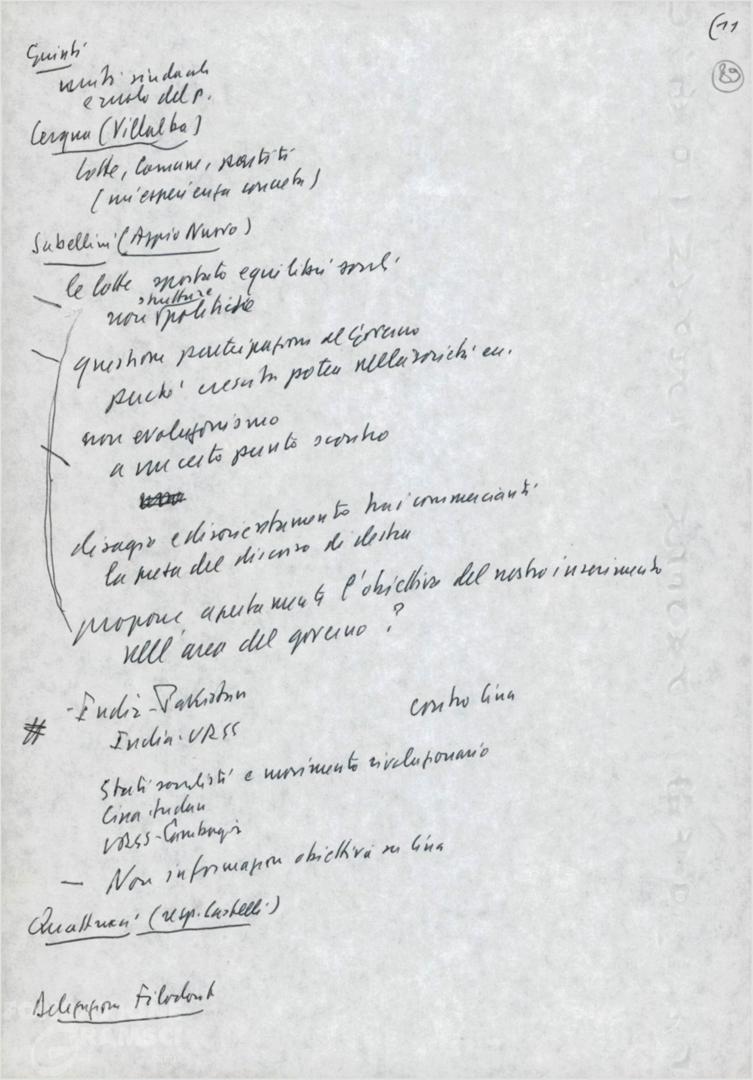 (11
89
Quinti
unità sindacale
e ruolo del p.
Cerqua (Villalba)
lotte, Comune, partiti
(un'esperienza concreta)
Sabellini (Appio Nuovo)
le lotte spostato equilibri sociali
strutture
non politiche
questione partecipazione al Governo
perché cresciuta potere nella società ecc.
non evoluzionismo
a un certo punto scontro
disagio e disorientamento tra i commercianti
la meta del discorso di destra
propone apertamente l'obiettivo del nostro inserimento
nell'area del governo?
# - India-Pakistan contro Cina
India-URSS
Stati socialisti e movimento rivoluzionario
Cina-Sudan
URSS-Cambogia
— Non informazione obiettiva su Cina
Quattrucci (resp. Castelli)
Delegazione Filodont